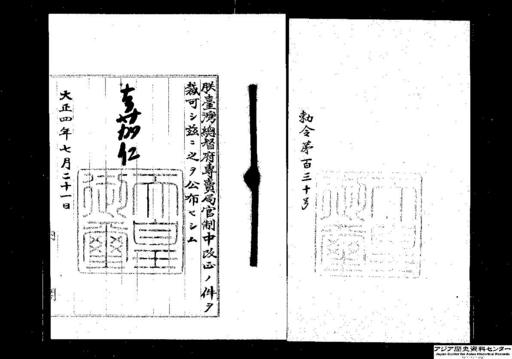 勅令第百三十号
朕臺灣總督府專賣局官制中改正ノ件ヲ
裁可シ茲ニ之ヲ公布セシム
嘉仁
天皇
御璽
大正四年七月二十一日
アジア歴史資料センター
Japan Center for Asian Historical Records